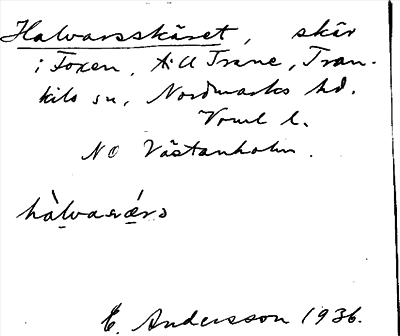 Halvarsskäret, skär
i Foxen, till Trane, Tran-
kils sn, Nordmarks hd.
Verml l.
NO Västanholm.
E. Andersson 1936.